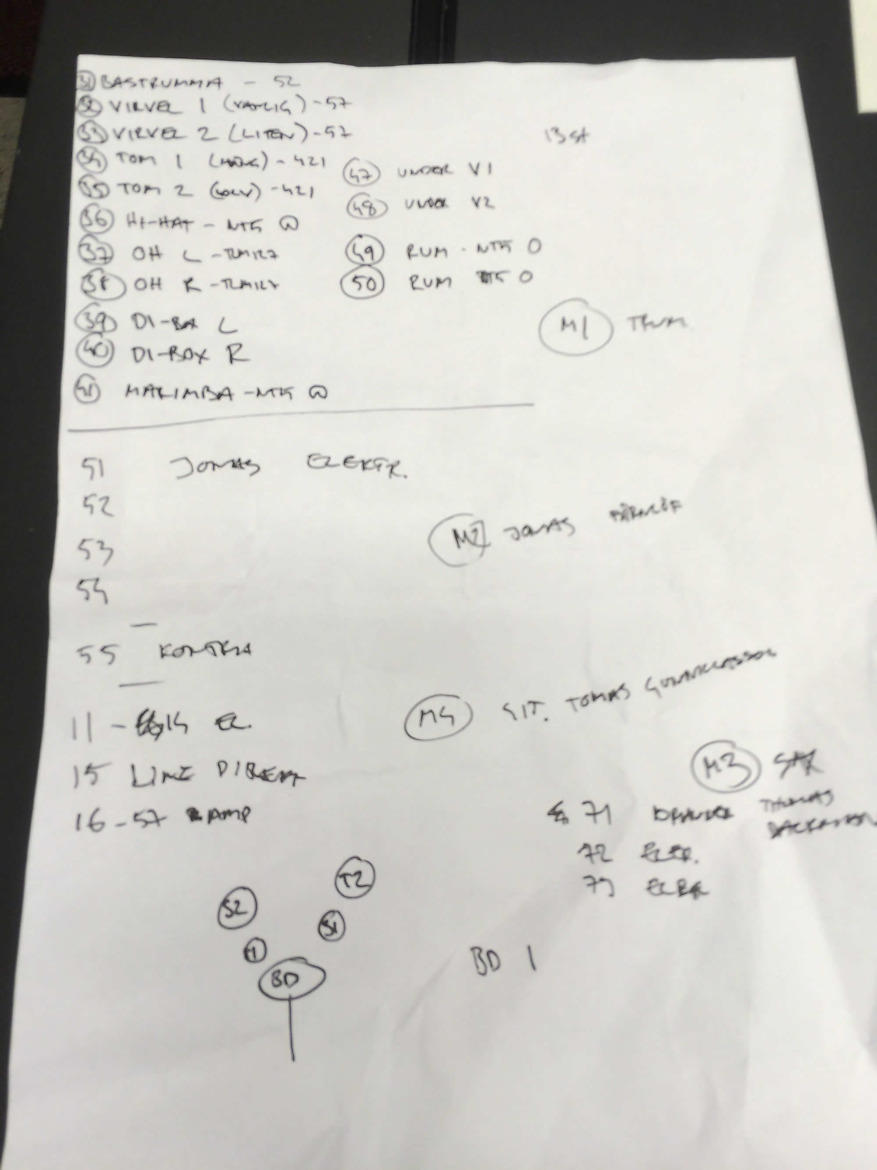 31 BASTRUMMA - 52
32 VIRVEL 1 (VANLIG) - 57
33 VIRVEL 2 (LITEN) - 57
13 st
34 TOM 1 (HÄNG) - 421
47 UNDER V1
35 TOM 2 (GOLV) - 421
48 UNDER V2
36 HI-HAT - NT5
49 RUM - NT5 O
37 OH L - TLM127
50 RUM NT5 O
38 OH R - TLM127
M1 TRUM
39 DI-BOX L
40 DI-BOX R
41 MARIMBA - NT5
51 JONAS ELEKTR.
52
M2 JONAS
53
54
55 KONTRA
M4 GIT. TOMAS
11 - EL.
M3 SAX
15 LINE DIREKT
71 THOMAS
16 - 57 AMP
72 ELEK.
73
T2
S2
S1
BD 1
BD